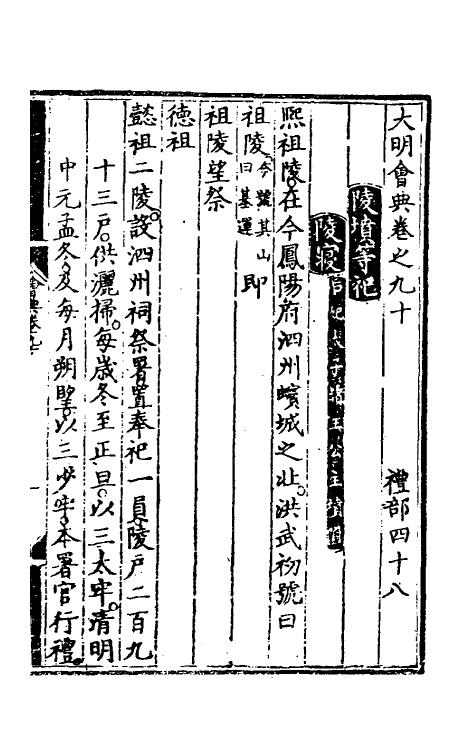 大明會典卷之九十 禮部四十八
陵墳等祀
陵寢 妃太子諸王公主墳附
熙祖陵在今鳳陽府泗州蠙城之北洪武初號曰
祖陵今號其山曰基運即
祖陵望祭
德祖
懿祖二陵設泗州祠祭署置奉祀一員陵戶二百九
十三戶供灑掃每歲冬至正旦以三太牢清明
中元孟冬及每月朔望以三少牢本署官行禮